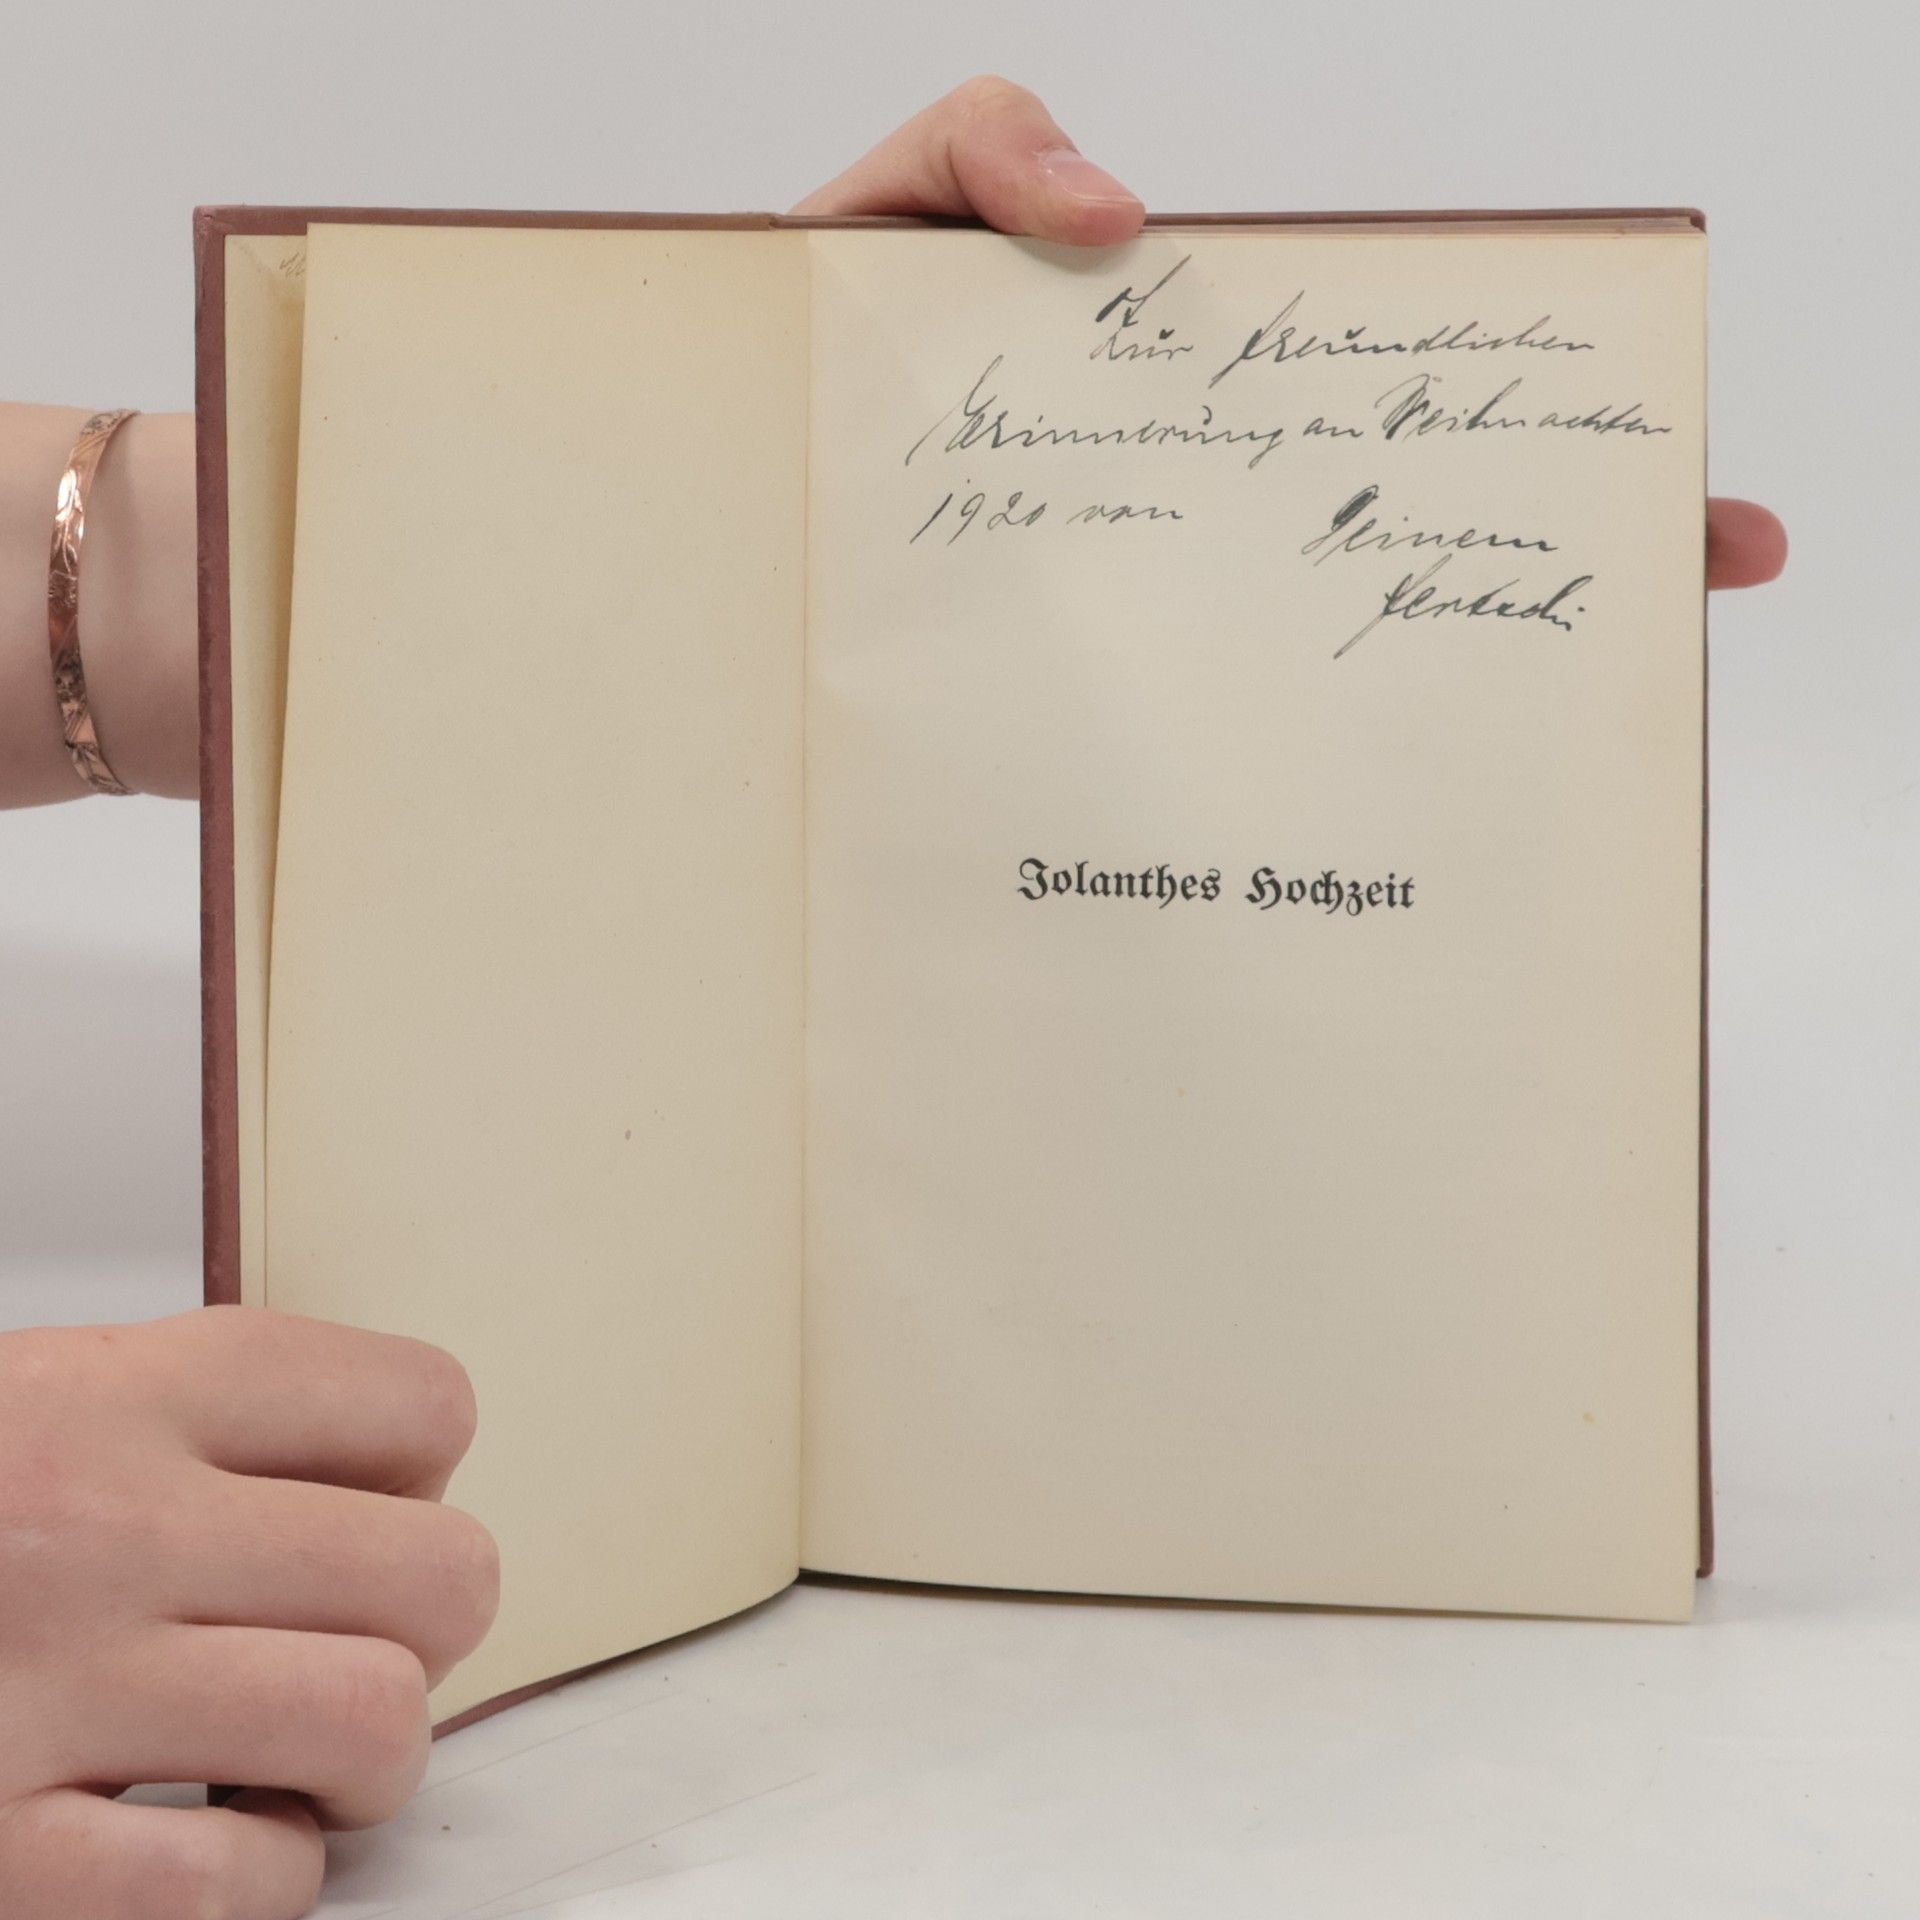 Zur freundlichen
Erinnerung an Weihnachten
1920 von Deinem
Jolanthes Hochzeit